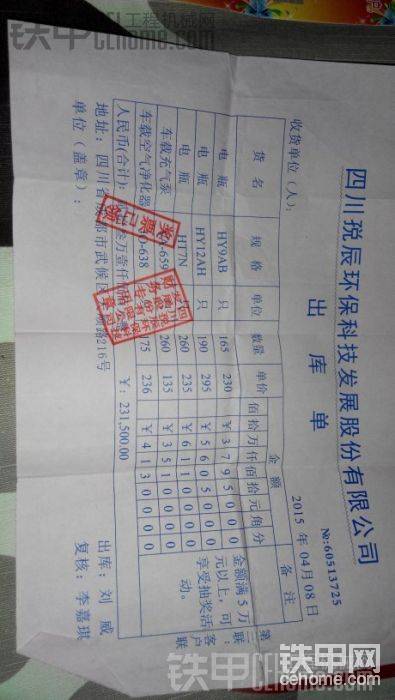 铁甲 工程机械网
cehome.com
四川税辰环保科技发展股份有限公司
出库单
№:60513725
收货单位(人):
2015 年 04 月 08 日
货名 规格 单位 数量 单价 金额 备注
佰 拾 万 仟 佰 拾 元 角 分
电瓶 HY9AB 只 165 230 ¥ 3 7 9 5 0 0 0
电瓶 HY12AH 只 190 295 ¥ 5 6 0 5 0 0 0
电瓶 260 235 ¥ 6 1 1 0 0 0 0
车载充气泵 -659 260 135 ¥ 3 5 1 0 0 0 0
车载空气净化器 -638 175 236 ¥ 4 1 3 0 0 0 0
金额满5万元以上,可享受抽奖活动。
第 联:客户联
人民币(合计): 叁万壹仟 ¥: 231,500.00
地址:四川省成都市武侯区 216号
单位(盖章):
出库:刘 威
复核:李嘉琪
发票
铁甲 工程机械网
cehome.com